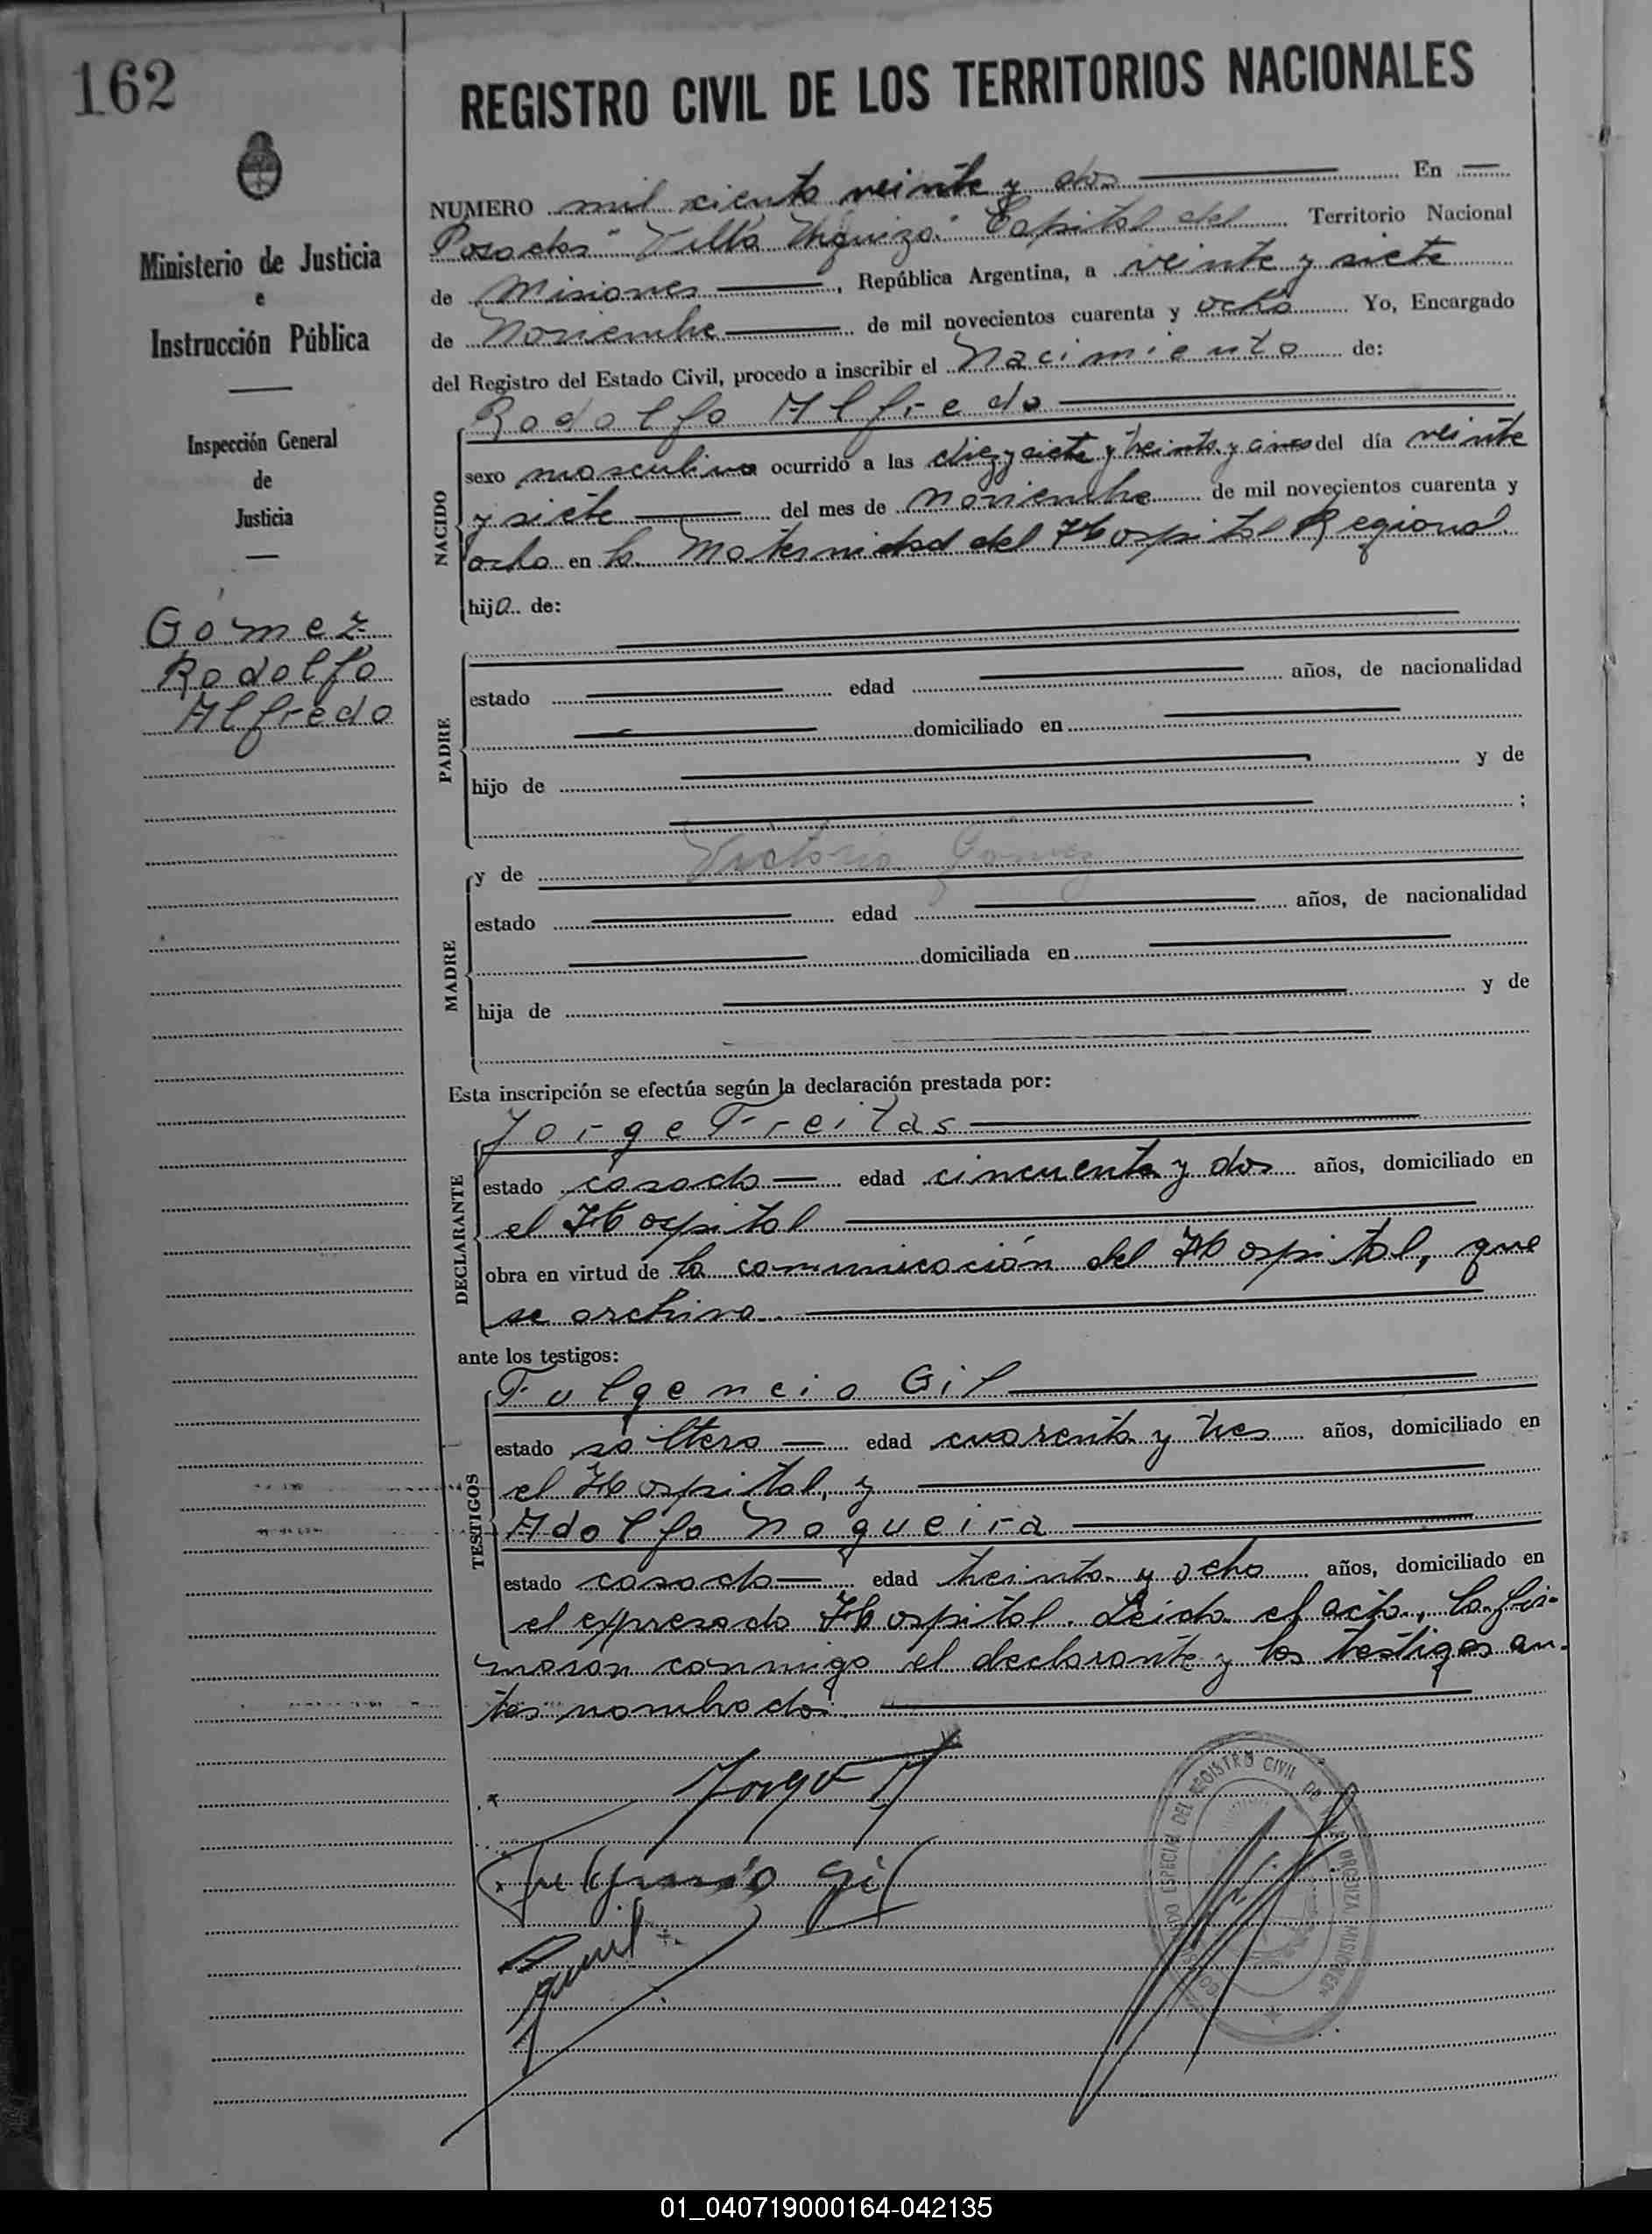 162
REGISTRO CIVIL DE LOS TERRITORIOS NACIONALES
Ministerio de Justicia
e
Instrucción Pública
Inspección General
de
Justicia
Gómez
Rodolfo
Alfredo
NUMERO mil ciento veinte y dos En
Posadas "Villa Urquiza" Capital del Territorio Nacional
de Misiones, República Argentina, a veinte y siete
de Noviembre de mil novecientos cuarenta y ocho Yo, Encargado
del Registro del Estado Civil, procedo a inscribir el Nacimiento de:
NACIDO
Rodolfo Alfredo
sexo masculino ocurrido a las diez y siete y treinta y cinco del día veinte
y siete del mes de noviembre de mil novecientos cuarenta y
ocho en la Maternidad del Hospital Regional
hijo de:
PADRE
estado edad años, de nacionalidad
domiciliado en
hijo de y de
;
MADRE
y de Victoria Gómez
estado edad años, de nacionalidad
domiciliada en
hija de y de
Esta inscripción se efectúa según la declaración prestada por:
DECLARANTE
Jorge Freitas
estado casado edad cincuenta y dos años, domiciliado en
el Hospital
obra en virtud de la comunicación del Hospital, que
se archiva.
ante los testigos:
TESTIGOS
Fulgencio Gil
estado soltero edad cuarenta y tres años, domiciliado en
el Hospital, y
Adolfo Nogueira
estado casado edad treinta y ocho años, domiciliado en
el expresado Hospital. Leida el acta, la fir-
maron conmigo el declarante y los testigos an-
tes nombrados.
Jorge F
Fulgencio Gil
REGISTRO CIVIL
URQUIZA MISIONES
01_040719000164-042135